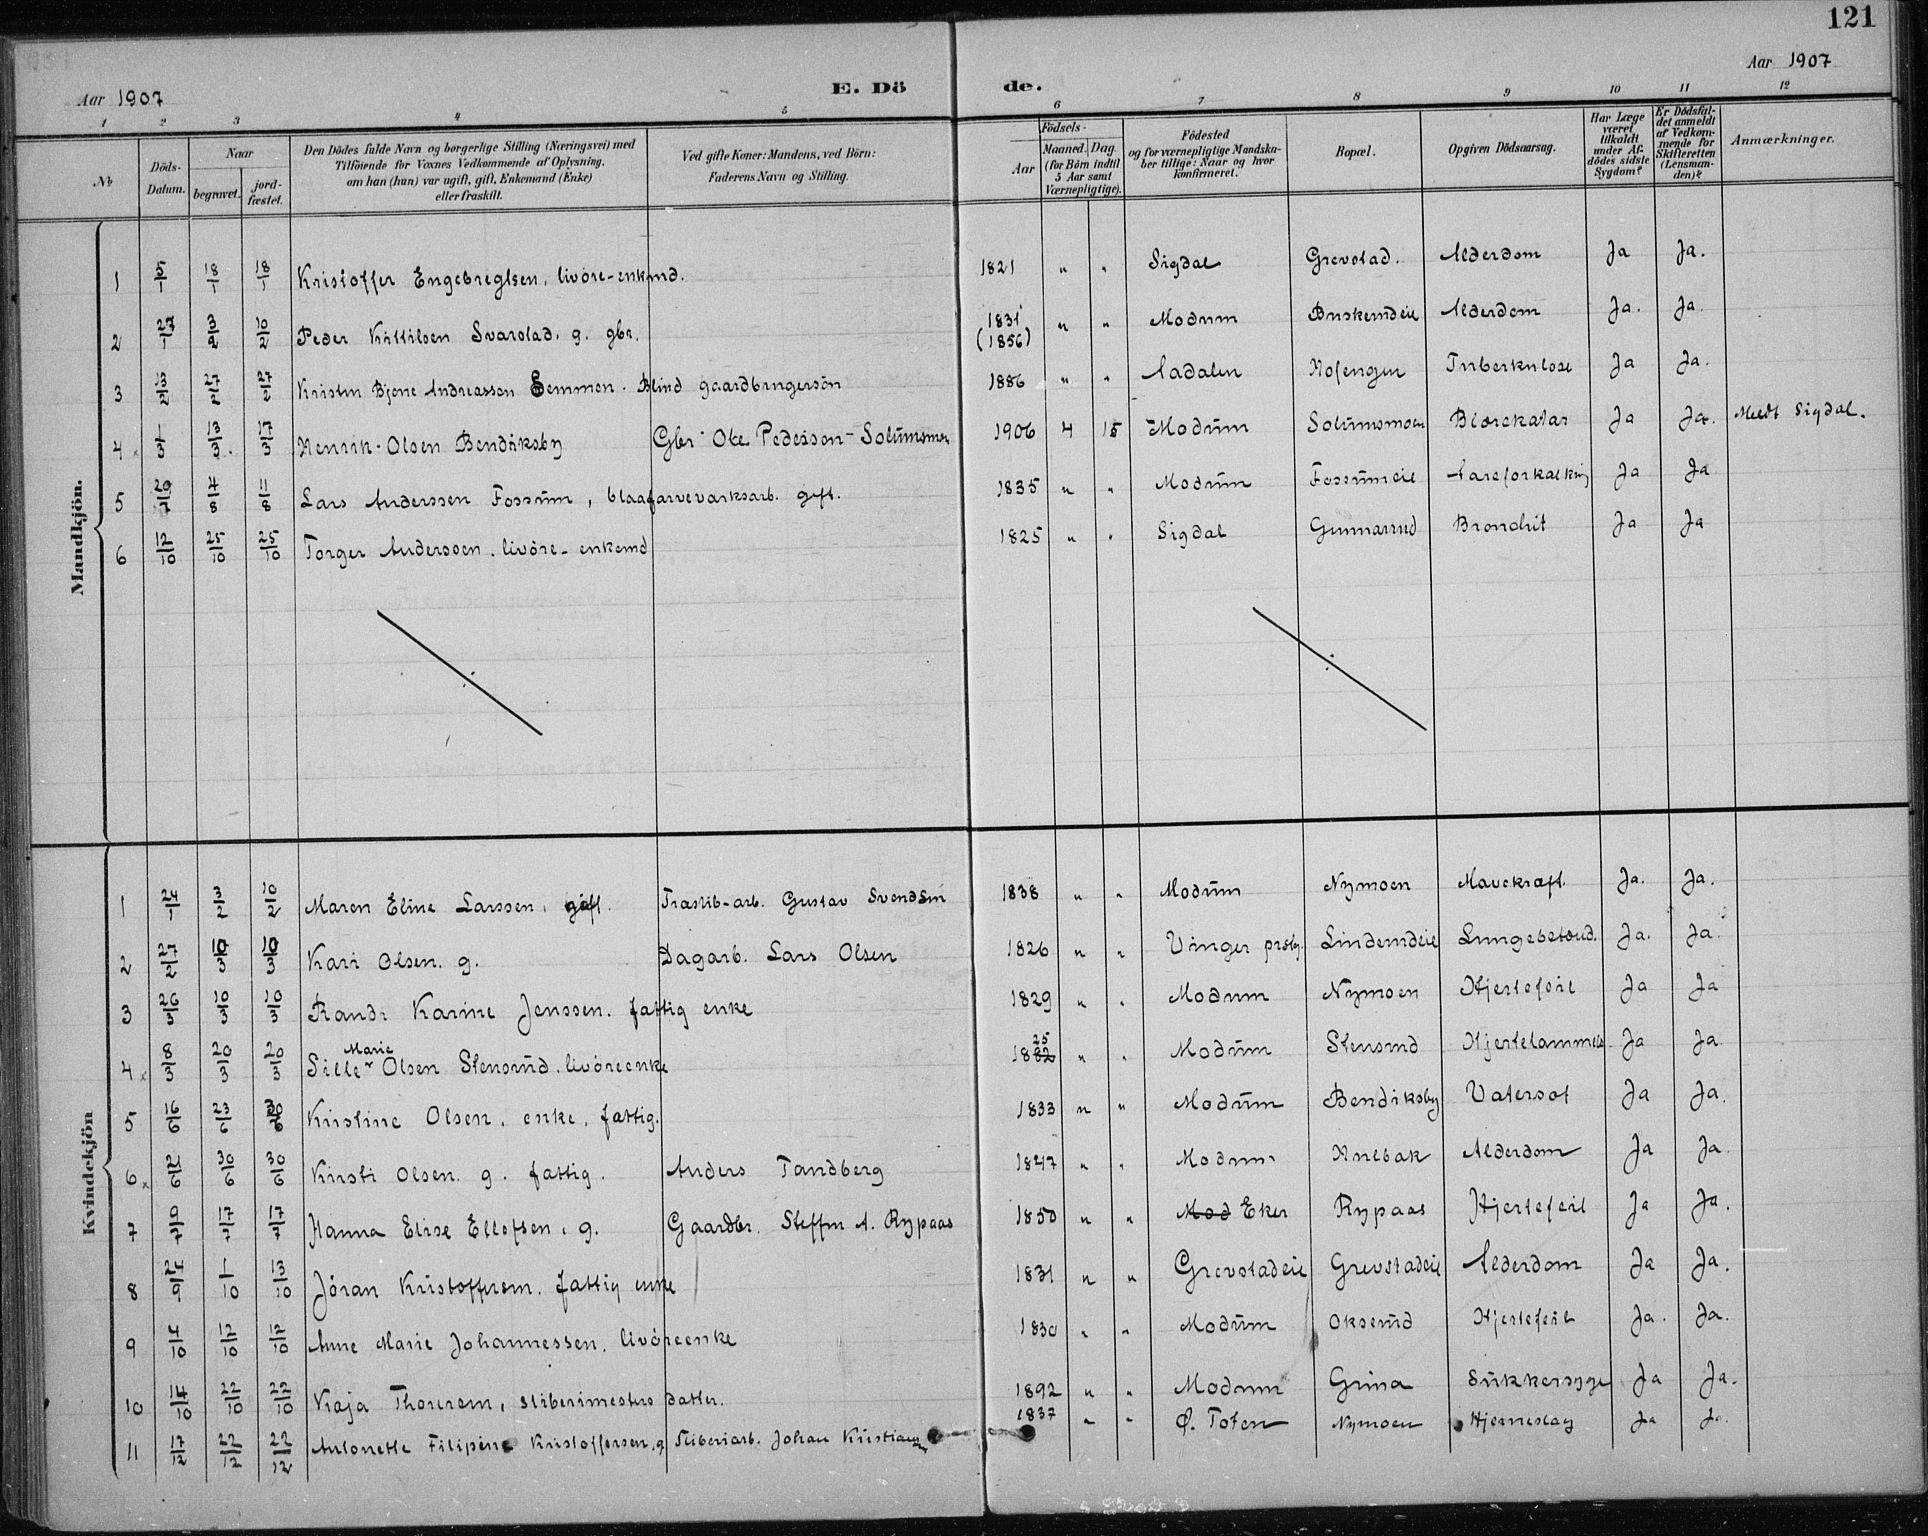 121
Aar 1907 E. Dö de. Aar 1907
1 2 3 4 5 6 7 8 9 10 11 12
№ Döds-Datum. Naar begravet. jord-fæstet. Den Dödes fulde Navn og borgerlige Stilling (Næringsvei) med Tilföiende for Voxnes Vedkommende af Oplysning, om han (hun) var ugift, gift, Enkemand (Enke) eller fraskilt. Ved gifte Koner: Mandens, ved Börn: Faderens Navn og Stilling. Födsels- Aar Maaned. Dag. (for Börn indtil 5 Aar samt Værnepligtige). Födested og for værnepligtige Mandskaber tillige: Naar og hvor konfirmeret. Bopæl. Opgiven Dödsaarsag. Har Læge været tilkaldt under Afdödes sidste Sygdom? Er Dödsfaldet anmeldt af Vedkommende for Skifteretten (Lensmanden)? Anmærkninger.
Mandkjön.
1 5/1 18/1 18/1 Kristoffer Engebregtsen, livöre-enkmd. 1821 " " Sigdal Grevstad. Alderdom Ja Ja.
2 27/1 3/2 10/2 Peder Kittilsen Svarstad. g. gbr. 1831 (1856) " " Modum Buskerudeie Alderdom Ja. Ja.
3 13/2 27/2 27/2 Kristen Bjerne Andreassen Semmen. Blind gaardbrugersön 1886 " " Aadalen Hofengen Tuberkulose Ja Ja.
4 1/3 13/3 17/3 Henrik Olsen Bendiksby Gbr. Ole Pedersen Solumsmoen 1906 4 15 Modum Solumsmoen Blærekatar Ja Ja. Meldt Sigdal.
5 29/7 4/8 11/8 Lars Anderssen Fossum, blaafarveværksarb. gift. 1835 " " Modum Fossumeie Aareforkalkning Ja Ja
6 12/10 25/10 25/10 Torger Anderssen. livöre-enkemd 1825 " " Sigdal Gunnarud Bronchit Ja Ja
Kvindekjön
1 24/1 3/2 10/2 Maren Eline Larssen, gift. Træslib-arb. Gustav Svendsen 1838 " " Modum Nymoen Mavekræft. Ja. Ja.
2 27/2 10/3 10/3 Kari Olsen. g. Dagarb. Lars Olsen 1826 " " Vinger prstg. Linderudeie Lungebetænd. Ja. Ja.
3 26/3 10/3 10/3 Randi Karine Jenssen. fattig enke 1829 " " Modum Nymoen Hjertefeil Ja Ja
4 8/3 20/3 20/3 Sille Marie Olsen Stensrud. livöreenke 1825 " " Modum Stensrud Hjertelammelse Ja Ja
5 16/6 23/6 30/6 Kristine Olsen, enke, fattig. 1833 " " Modum Bendiksby Vatersot Ja Ja.
6 22/6 30/6 30/6 Kirsti Olsen. g. fattig. Anders Tandberg 1847 " " Modum Hulbak Alderdom Ja Ja.
7 9/7 17/7 17/7 Hanna Elise Ellefsen, g. Gaardbr. Steffen A. Rypaas 1850 " " Mod Eker Rypaas Hjertefeil Ja Ja.
8 24/9 1/10 13/10 Jöran Kristoffersen. fattig enke 1831 " " Grevstadeie Grevstadeie Alderdom Ja Ja.
9 4/10 12/10 12/10 Anne Marie Johannessen, livöreenke 1830 " " Modum Oksrud Hjertefeil Ja. Ja.
10 14/10 22/10 22/10 Kaja Thoresen, sliberimesters datter. 1892 " " Modum Grina Sukkersyge Ja Ja.
11 17/12 22/12 22/12 Antonette Filipine Kristoffersen, g. Sliberiarb. Johan Kristiansen 1837 " " Ø. Toten Nymoen Hjerneslag Ja Ja